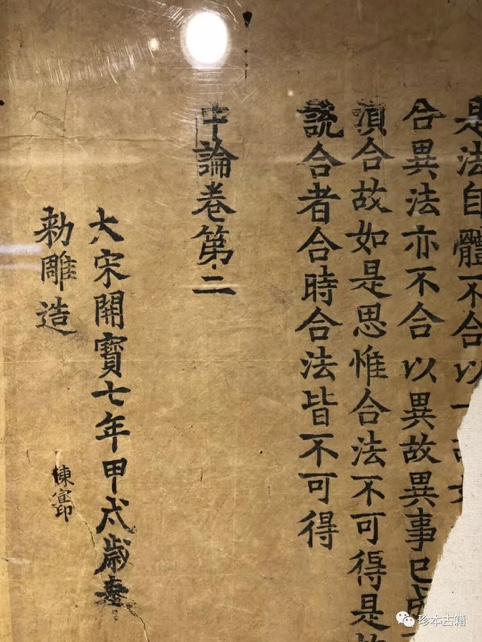 是法自體不合以一故
合異法亦不合以異故異事已成
須合故如是思惟合法不可得是故
說合者合時合法皆不可得
中論卷第二
大宋開寶七年甲戌歲奉
勑雕造
陳宻印
珍本古籍